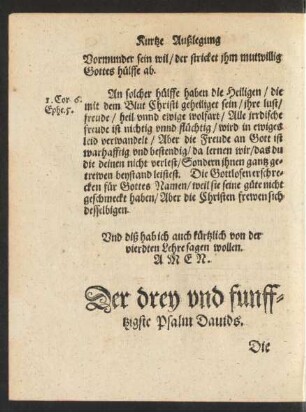 Kurtze Außlegung
Vormunder sein wil/der stricket jhm mutwillig
Gottes hülffe ab.
An solcher hülffe haben die Heiligen / die
1. Cor. 6.
mit dem Blut Christi geheiliget sein / jhre lust/
Ephe. 5.
freude / heil vnnd ewige wolfart / Alle irrdische
freude ist nichtig vnnd flüchtig / wird in ewiges
leid verwandelt / Aber die Freude an Gott ist
warhafftig vnd bestendig / da lernen wir / das du
die deinen nicht verlest / Sondern jhnen gantz ge-
trewen beystand leistest. Die Gottlosen erschre-
cken für Gottes Namen / weil sie seine güte nicht
geschmeckt haben / Aber die Christen frewen sich
desselbigen.
Vnd diß hab ich auch kürtzlich von der
vierdten Lehre sagen wollen.
AMEN.
Der drey vnd funff-
tzigste Psalm Dauids.
Die